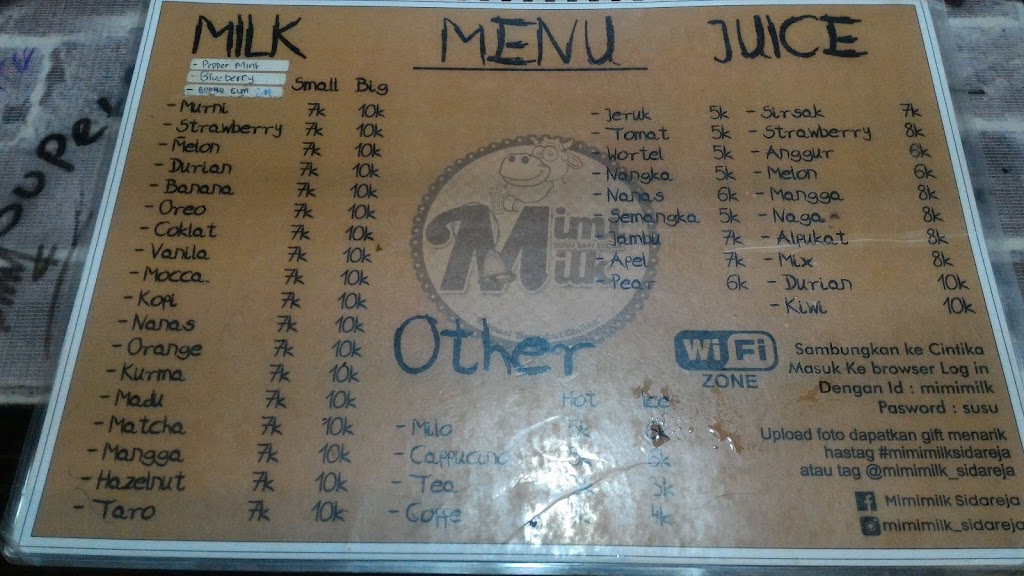 MILK MENU JUICE
- Pepper Mint
- Blueberry
- Bubble Gum
Small Big
- Murni 7k 10k
- Strawberry 7k 10k
- Melon 7k 10k
- Durian 7k 10k
- Banana 7k 10k
- Oreo 7k 10k
- Coklat 7k 10k
- Vanila 7k 10k
- Mocca 7k 10k
- Kopi 7k 10k
- Nanas 7k 10k
- Orange 7k 10k
- Kurma 7k 10k
- Madu 7k 10k
- Matcha 7k 10k
- Mangga 7k 10k
- Hazelnut 7k 10k
- Taro 7k 10k
Mimi
Milk
- Jeruk 5k
- Tomat 5k
- Wortel 5k
- Nangka 5k
- Nanas 6k
- Semangka 5k
- Jambu 7k
- Apel 7k
- Pear 6k
- Sirsak 7k
- Strawberry 8k
- Anggur 6k
- Melon 6k
- Mangga 8k
- Naga 8k
- Alpukat 8k
- Mix 8k
- Durian 10k
- Kiwi 10k
Other
Hot Ice
- Milo 5k
- Cappucino
- Tea 3k
- Coffe 4k
Wi Fi
ZONE
Sambungkan ke Cintika
Masuk Ke browser Log in
Dengan Id : mimimilk
Pasword : susu
Upload foto dapatkan gift menarik
hastag #mimimilksidareja
atau tag @mimimilk_sidareja
Mimimilk Sidareja
mimimilk_sidareja